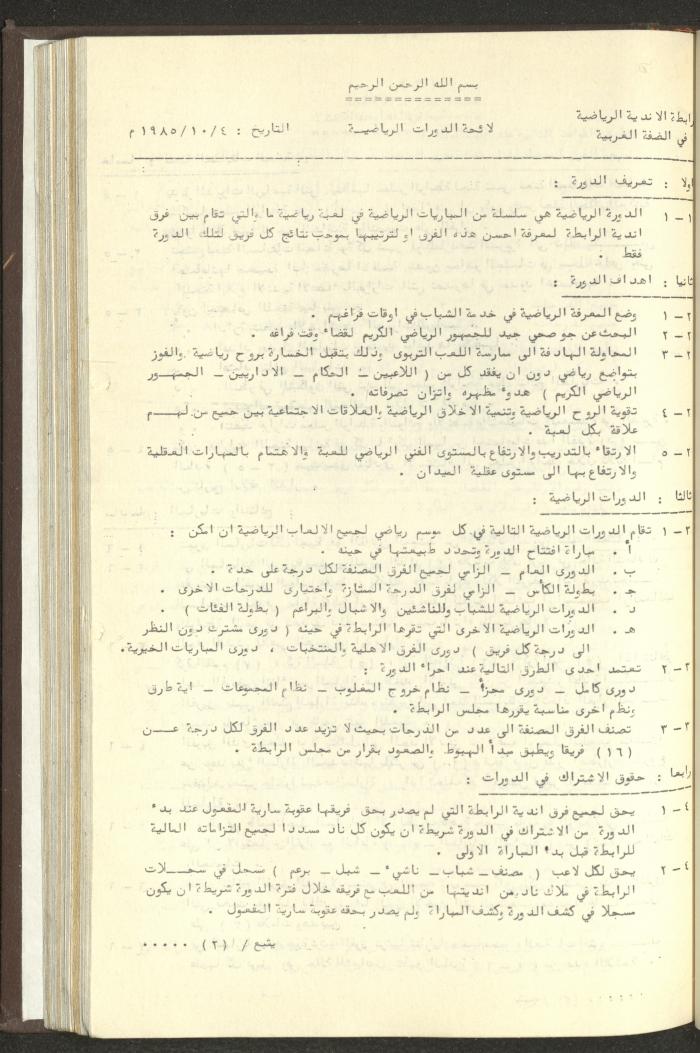 بسم الله الرحمن الرحيم
رابطة الاندية الرياضية
في الضفة الغربية
لائحة الدورات الرياضيـــة
التاريخ : ١٩٨٥/١٠/٤ م
اولا : تعريف الدورة :
١ – ١ الدورة الرياضية هي سلسلة من المباريات الرياضية في لعبة رياضية ما والتي تقام بين فرق
اندية الرابطة لمعرفة احسن هذه الفرق او لترتيبها بموجب نتائج كل فريق لتلك الدورة
فقط .
ثانيا : اهداف الدورة :
٢ – ١ وضع المعرفة الرياضية في خدمة الشباب في اوقات فراغهم .
٢ – ٢ البحث عن جو صحي جيد للجمهور الرياضي الكريم لقضاء وقت فراغه .
٢ – ٣ المحاولة الهادفة الى ممارسة اللعب التربوى وذلك بتقبل الخسارة بروح رياضية والفوز
بتواضع رياضي دون ان يفقد كل من ( اللاعبين – الحكام – الاداريين – الجمهــور
الرياضي الكريم ) هدوء مظهره واتزان تصرفاته .
٢ – ٤ تقوية الروح الرياضية وتنمية الاخلاق الرياضية والعلاقات الاجتماعية بين جميع من لهــم
علاقة بكل لعبة .
٢ – ٥ الارتقاء بالتدريب والارتفاع بالمستوى الفني الرياضي للعبة والاهتمام بالمهارات العقلية
والارتفاع بها الى مستوى عقلية الميدان .
ثالثا : الدورات الرياضية :
٣ – ١ تقام الدورات الرياضية التالية في كل موسم رياضي لجميع الالعاب الرياضية ان امكن :
أ . مباراة افتتاح الدورة وتحدد طبيعتها في حينه .
ب . الدورى العام – الزامي لجميع الفرق المصنفة لكل درجة على حدة .
جـ . بطولة الكأس – الزامي لفرق الدرجة الممتازة واختيارى للدرجات الاخرى .
د . الدورات الرياضية للشباب وللناشئين والاشبال والبراعم ( بطولة الفئات ) .
هـ . الدورات الرياضية الاخرى التي تقرها الرابطة في حينه ( دورى مشترك دون النظر
الى درجة كل فريق ) دورى الفرق الاهلية والمنتخبات ، دورى المباريات الخيرية.
٣ – ٢ تعتمد احدى الطرق التالية عند اجراء الدورة :
دورى كامل – دورى مجزأ – نظام خروج المغلوب – نظام المجموعات – اية طرق
ونظم اخرى مناسبة يقررها مجلس الرابطة .
٣ – ٣ تصنف الفرق المصنفة الى عدد من الدرجات بحيث لا تزيد عدد الفرق لكل درجة عـــن
(١٦) فريقا ويطبق مبدأ الهبوط والصعود بقرار من مجلس الرابطة .
رابعا : حقوق الاشتراك في الدورات :
٤ – ١ يحق لجميع فرق اندية الرابطة التي لم يصدر بحق فريقها عقوبة سارية المفعول عند بدء
الدورة من الاشتراك في الدورة شريطة ان يكون كل ناد مسددا لجميع التزاماته المالية
للرابطة قبل بدء المباراة الاولى .
٤ – ٢ يحق لكل لاعب ( مصنف – شباب – ناشيء – شبل – برعم ) سجل في سجـــلات
الرابطة في ملاك ناد من انديتها من اللعب مع فريقه خلال فترة الدورة شريطة ان يكون
مسجلا في كشف الدورة وكشف المباراة ولم يصدر بحقه عقوبة سارية المفعول .
يتبع / (٢) ٠٠٠٠٠